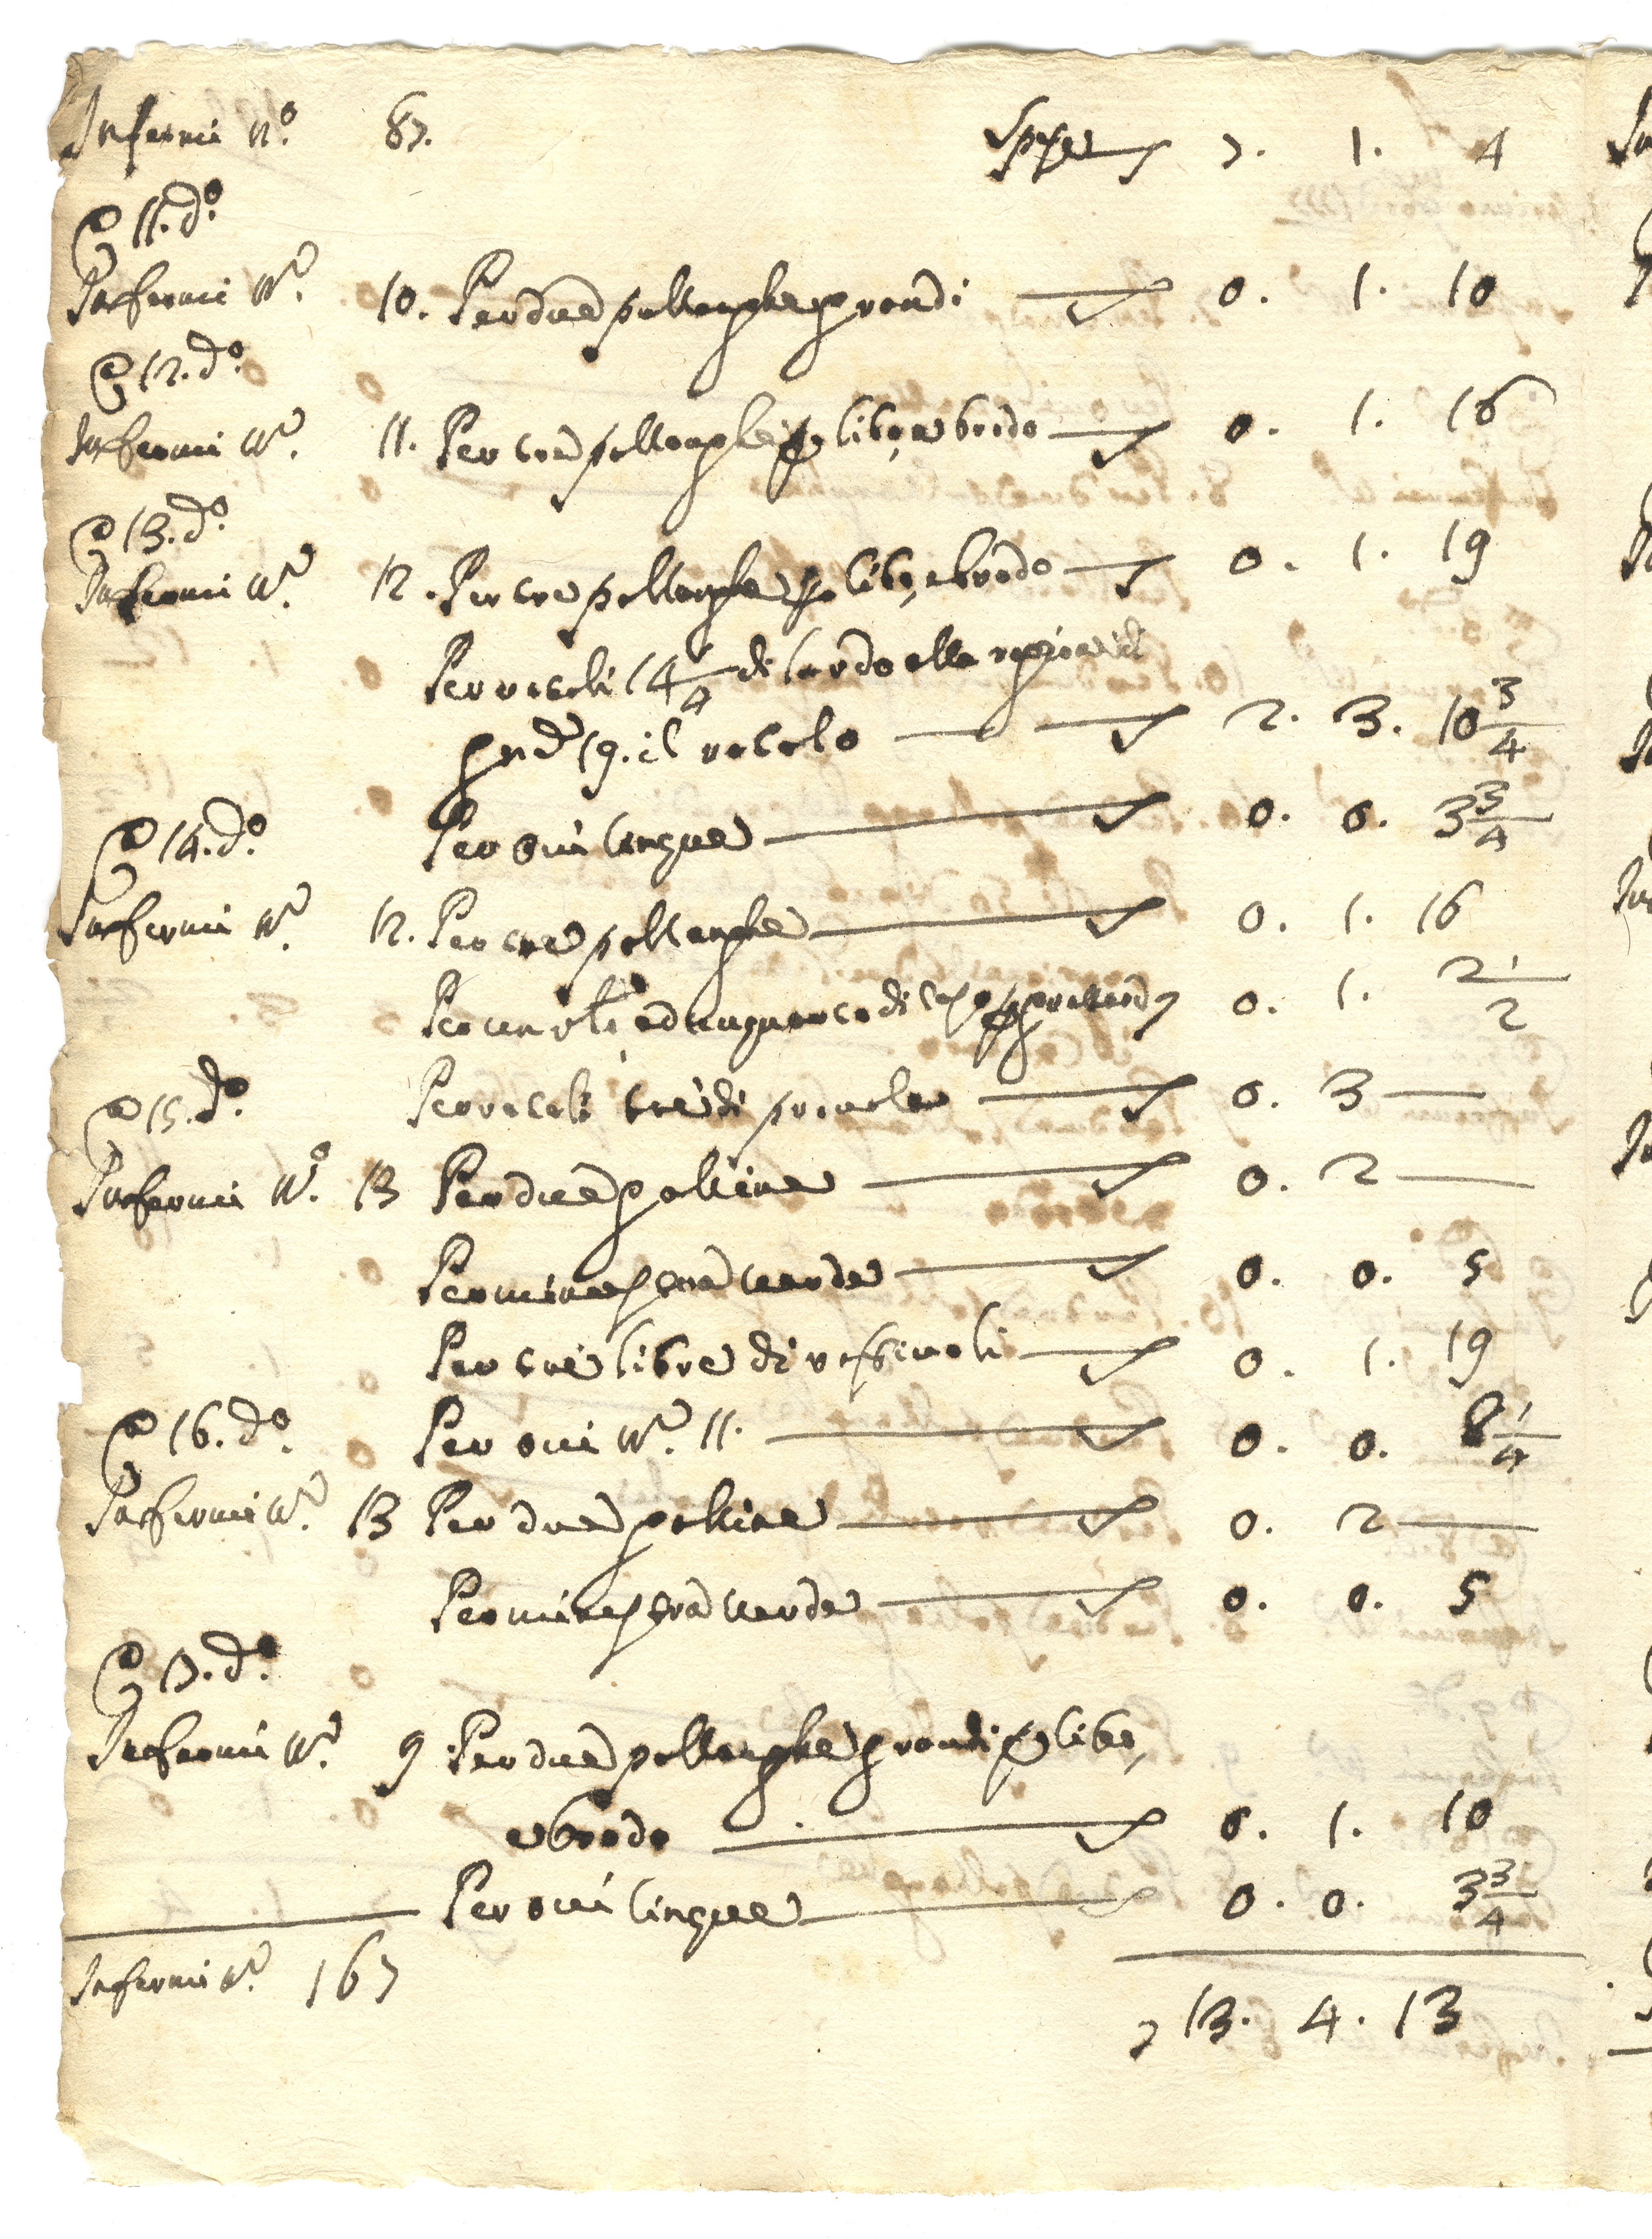 Infermi nº 87. Spese 7. 1. 4
A 11. dº
Infermi nº 10. Per due pollanghe grandi 0. 1. 10
A 12. dº
Infermi nº 11. Per tre pollanghe p libo, e brodo 0. 1. 16
A 13. dº
Infermi nº 12. Per tre pollanghe p libo, e brodo 0. 1. 19
Per rotoli 14 1/4 di lardo alla ragione di
grd 19. il rotolo 2. 3. 10 3/4
A 14. dº Per oui cinque 0. 0. 3 3/4
Infermi nº 12. Per tre pollanghe 0. 1. 16
Per un di 0. 1. 2 1/2
A 15. dº Per rotoli tre di 0. 3 —
Infermi nº 13 Per due galline 0. 2 —
Per minestra verde 0. 0. 5
Per tre libre di 0. 1. 19
A 16. dº Per oui nº 11. 0. 0. 8 1/4
Infermi nº 13 Per due galline 0. 2 —
Per minestra verde 0. 0. 5
A 17. dº
Infermi nº 9 Per due pollanghe grandi p libo,
e brodo 0. 1. 10
Per oui cinque 0. 0. 3 3/4
Infermi nº 167
13. 4. 13